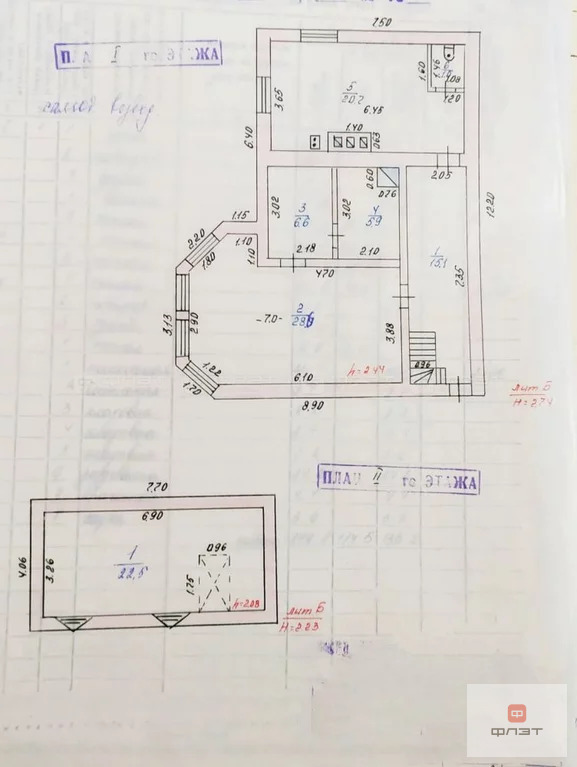 ПЛАН I го ЭТАЖА
самов возвед
7.50
3.65
6.40
5
20.2
6.45
1.60
1.46
1.08
1.20
1.40
0.63
3.02
3
6.6
2.18
3.02
4
5.9
2.10
0.60
0.76
2.05
12.20
1
15.1
7.35
1.15
1.10
1.10
2.20
1.80
4.70
3.13
2.90
-7.0-
2
3.88
1.22
1.70
6.10
8.90
h=2.44
0.96
лит Б
H=2.74
ПЛАН II го ЭТАЖА
7.70
6.90
4.06
3.26
1
22.5
0.96
1.75
h=2.03
лит Б
H=2.23
ФЛЭТ